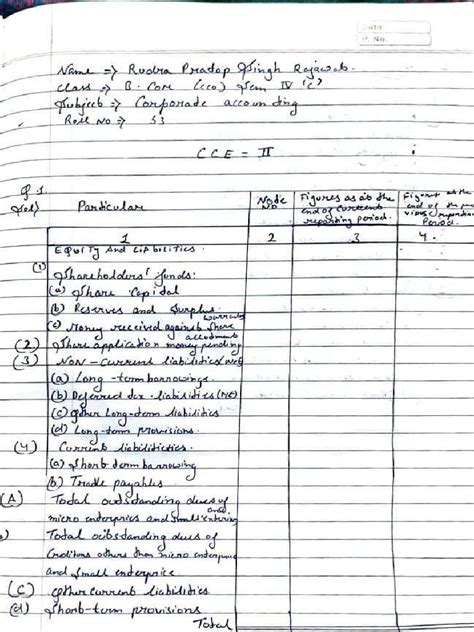 Date
P. No.
Name => Rudra Pratap Singh Rajawat.
Class => B. Com (CCO) Sem IV 'C'
Subject => Corporate accounting
Roll No => 53
CCE = II
Q 1.
Sol) Particulars Note No Figures as at the end of current reporting period. Figures as at the end of the previous reporting Period.
1 2 3 4.
Equity And Liabilities.
(1) Shareholders' funds:
(a) Share Capital
(b) Reserves and Surplus
(c) Money received against share warrants
(2) Share application money pending allotment
(3) Non-Current liabilities
(a) Long-term borrowings
(b) Deferred tax-liabilities
(c) Other Long-term liabilities
(d) Long-term provisions.
(4) Current liabilities.
(a) Short term borrowing
(b) Trade payables.
(A) Total outstanding dues of
micro enterprises and small
Total outstanding dues of
Creditors others than micro enterprise
and small enterprise
(C) Other current liabilities
(d) Short-term provisions
Total